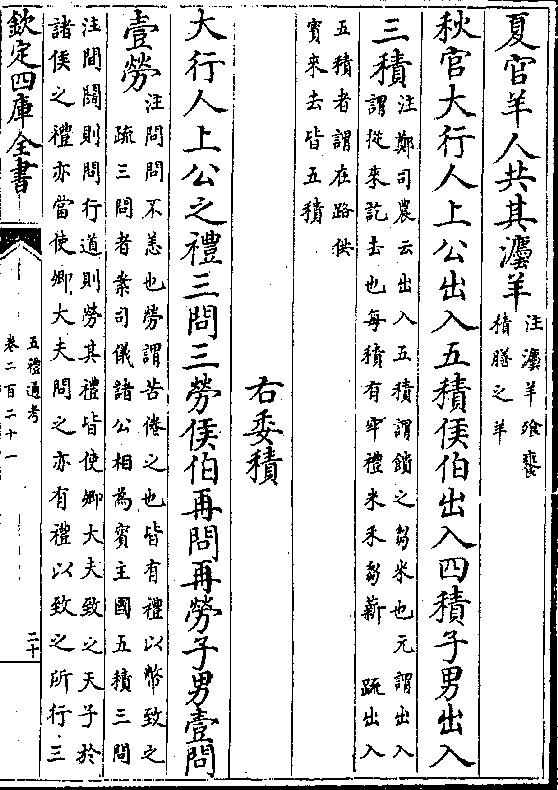 夏官羊人共其灋羊
注灋羊飧饔
積膳之羊
秋官大行人上公出入五積侯伯出入四積子男出入
三積
注鄭司農云出入五積謂饋之芻米也元謂出入
謂從來訖去也每積有牢禮米禾芻薪 疏出入
五積者謂在路供
賓來去皆五積
右委積
大行人上公之禮三問三勞侯伯再問再勞子男壹問
壹勞
注問問不恙也勞謂苦倦之也皆有禮以幣致之
疏三問者案司儀諸公相為賓主國五積三問
注間闊則問行道則勞其禮皆使卿大夫致之天子於
諸侯之禮亦當使卿大夫問之亦有禮以致之所行三
欽定四庫全書
五禮通考
卷二百二十一
二十